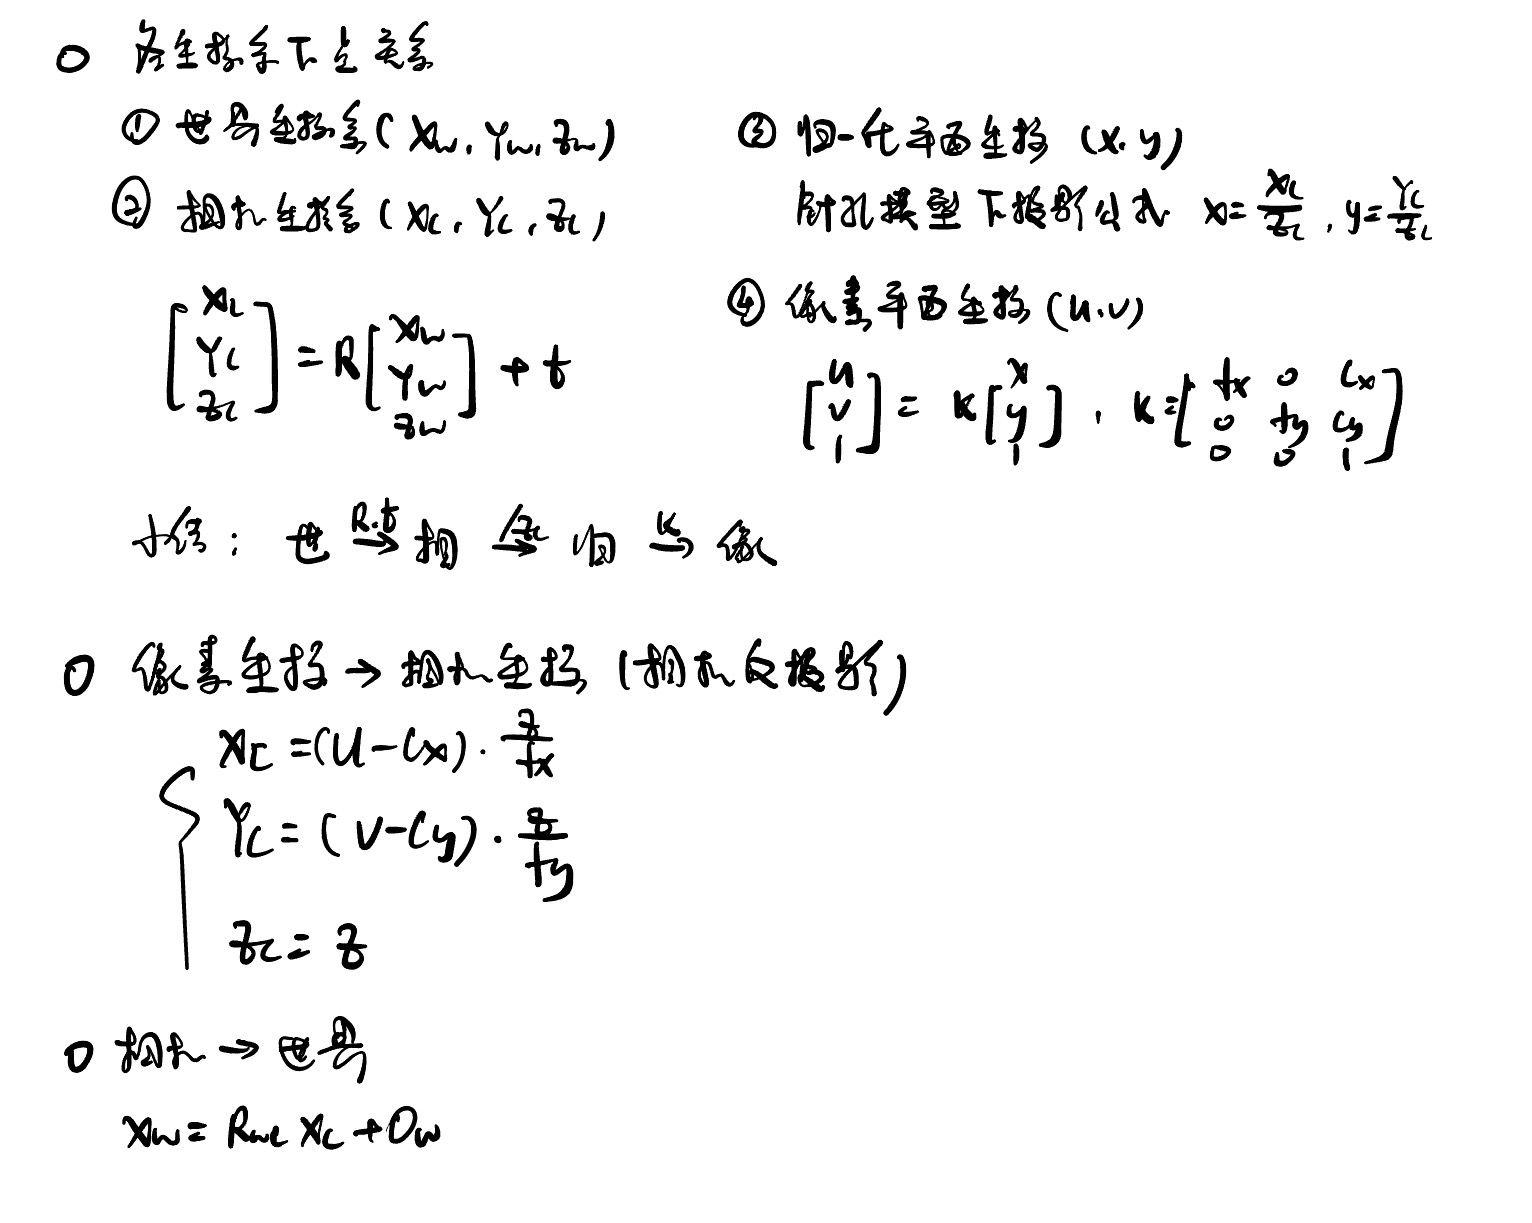 各坐标系下点关系
① 世界坐标系(Xw, Yw, Zw)
② 相机坐标系(Xc, Yc, Zc)
[Xc Yc Zc] = R[Xw Yw Zw] + t
③ 归一化平面坐标 (x, y)
针孔模型下投影公式 x = Xc/Zc, y = Yc/Zc
④ 像素平面坐标(u, v)
[u v 1] = K[x y 1], K = [fx 0 cx 0 fy cy 0 0 1]
小结: 世 R.t→ 相 /Zc→ 归 K→ 像
像素坐标 → 相机坐标 (相机反投影)
Xc = (u - cx) · z/fx
Yc = (v - cy) · z/fy
Zc = z
相机 → 世界
Xw = Rwc Xc + Ow